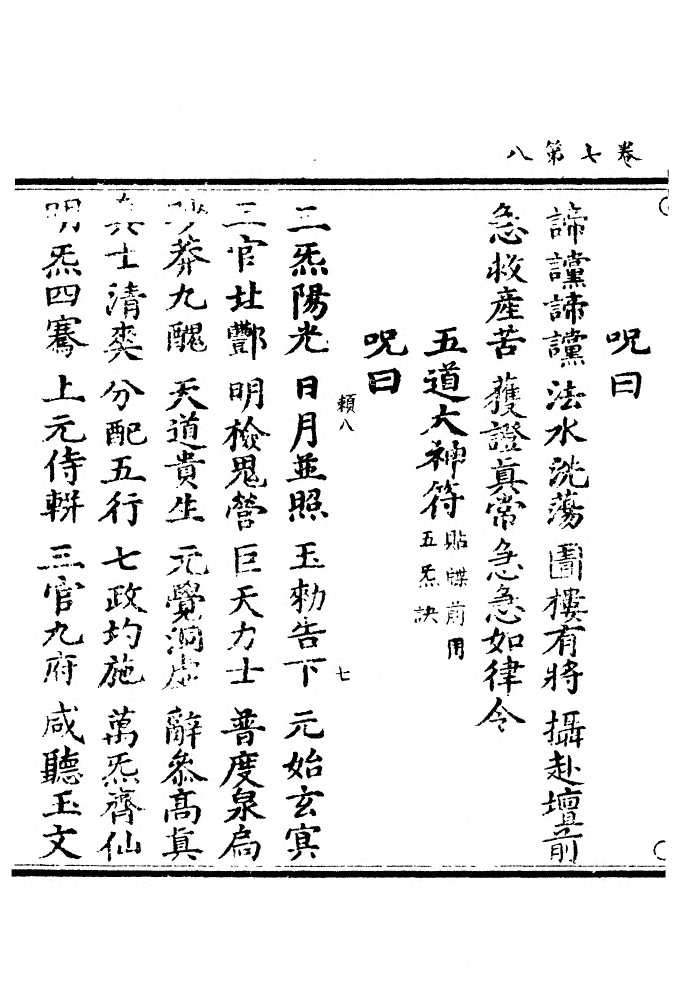 卷七第八
呪曰
諦讜諦讜 法水洗蕩 圊樓有將 攝赴壇前
急救產苦 獲證真常 急急如律令
五道大神符 貼牒前用
五炁訣
呪曰
頼八 七
二炁陽光 日月並照 玉勑告下 元始玄冥
三官北酆 明檢鬼營 巨天力士 普度泉扃
莽九醜 天道貴生 元覺洞虛 辭參高真
士清奕 分配五行 七政均施 萬炁齊仙
明炁四騫 上元侍軿 三官九府 咸聽玉文